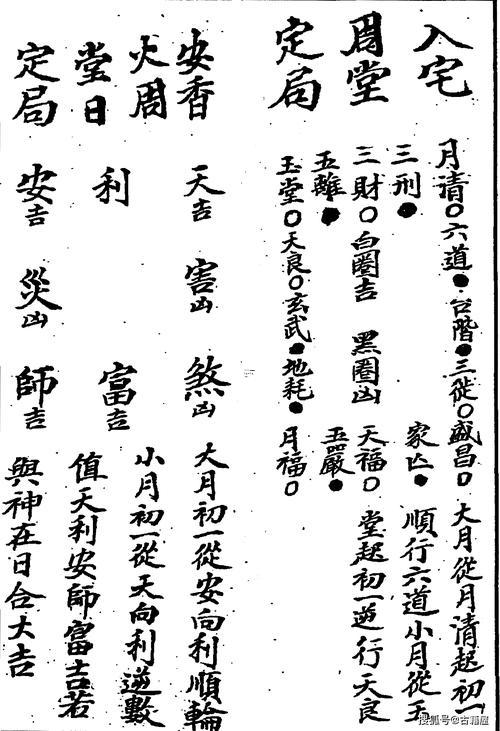 入宅
周堂
定局
月清○六道●台階●三徙○盛昌○
三刑● 家亡●
三財○白圈吉 黑圈凶 天福○
五離● 玉嚴●
玉堂○天良○玄武●地耗● 月福○
大月從月清起初一
順行六道小月從玉
堂起初一逆行天良
安香
火周
堂日
定局
天吉 害凶 煞凶
利 富吉
安吉 災凶 師吉
大月初一從安向利順輪
小月初一從天向利逆數
值天利安師富吉若
與神在日合大吉
搜狐号@古籍屋